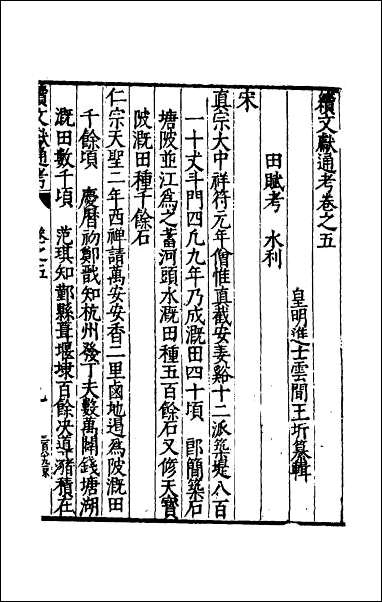 續文獻通考卷之五
皇明進士雲間王圻纂輯
田賦考 水利
宋
真宗大中祥符元年僧惟直截安妻谿十二派築堤八百
一十丈斗門四凢九年乃成溉田四十頃 郎簡築石
塘陂並江為之蓄河頭水溉田種五百餘石又修天寶
陂溉田種千餘石
仁宗天聖二年西禆請萬安安香二里鹵地遏為陂溉田
千餘頃 慶曆初鄭戩知杭州發丁夫數萬闢錢塘湖
溉田數千頃 范琪知鄞縣葺堰埭百餘決導瀦積在
續文獻通考 卷之五 九